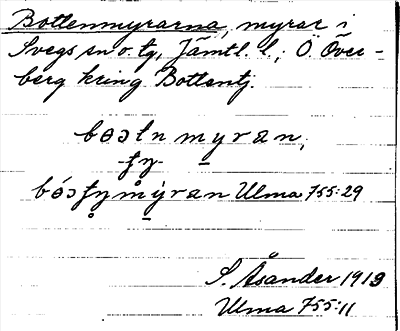 Bottenmyrarna, myrar i
Svegs sn o. tg, Jämtl. l.; Ö Över-
berg kring Bottentj.
myran,
Ulma 755:29
S. Åsander 1913
Ulma 755:11